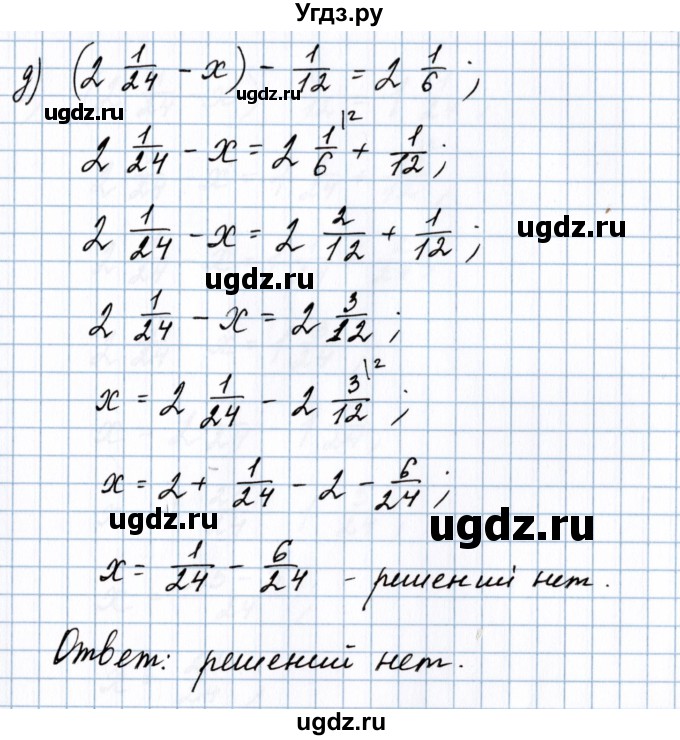 Угдз.ру
д) (2 1/24 - x) - 1/12 = 2 1/6 ;
ugdz.ru ugdz.ru
2 1/24 - x = 2 1/6 |2 + 1/12 ;
2 1/24 - x = 2 2/12 + 1/12 ;
ugdz.ru
ugdz.ru
2 1/24 - x = 2 3/12 ;
x = 2 1/24 - 2 3/12 |2 ;
x = 2 + 1/24 - 2 - 6/24 ;
ugdz.ru ugdz.ru
x = 1/24 - 6/24 - решений нет.
Ответ: решений нет.
ugdz.ru